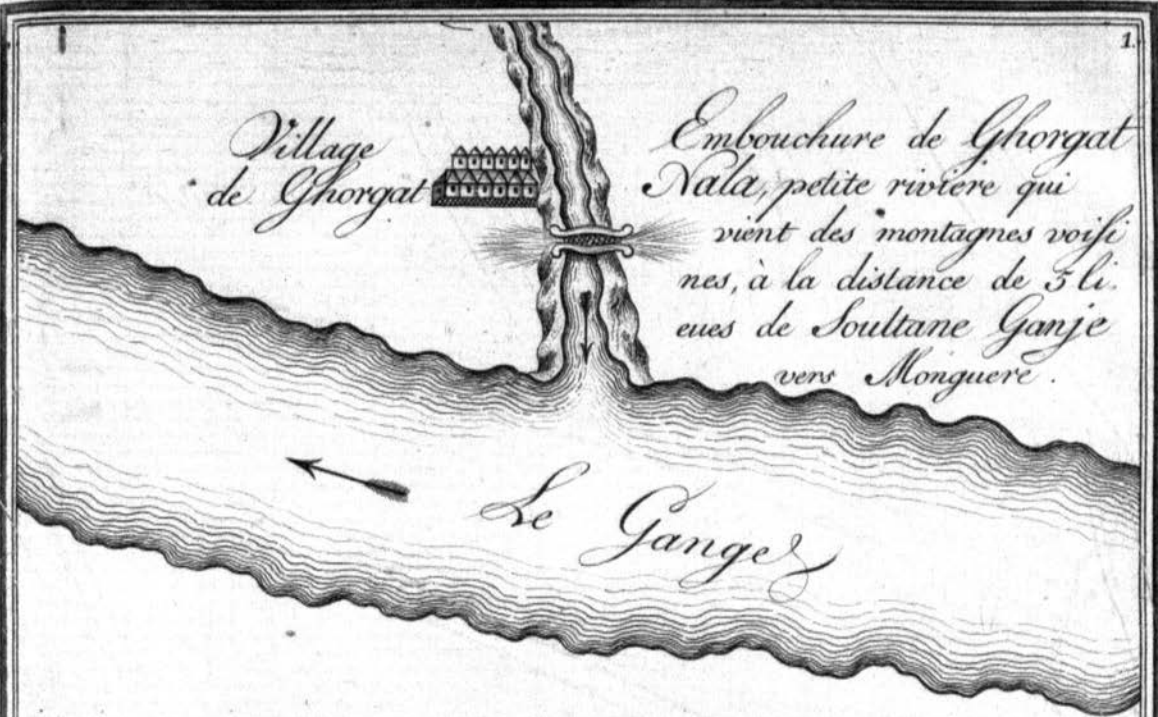 1.
Village
de Ghorgat
Embouchure de Ghorgat
Nala, petite riviere qui
vient des montagnes voiſi
nes, à la distance de 5 li.
eues de Soultane Ganje
vers Monguere.
Le Gange